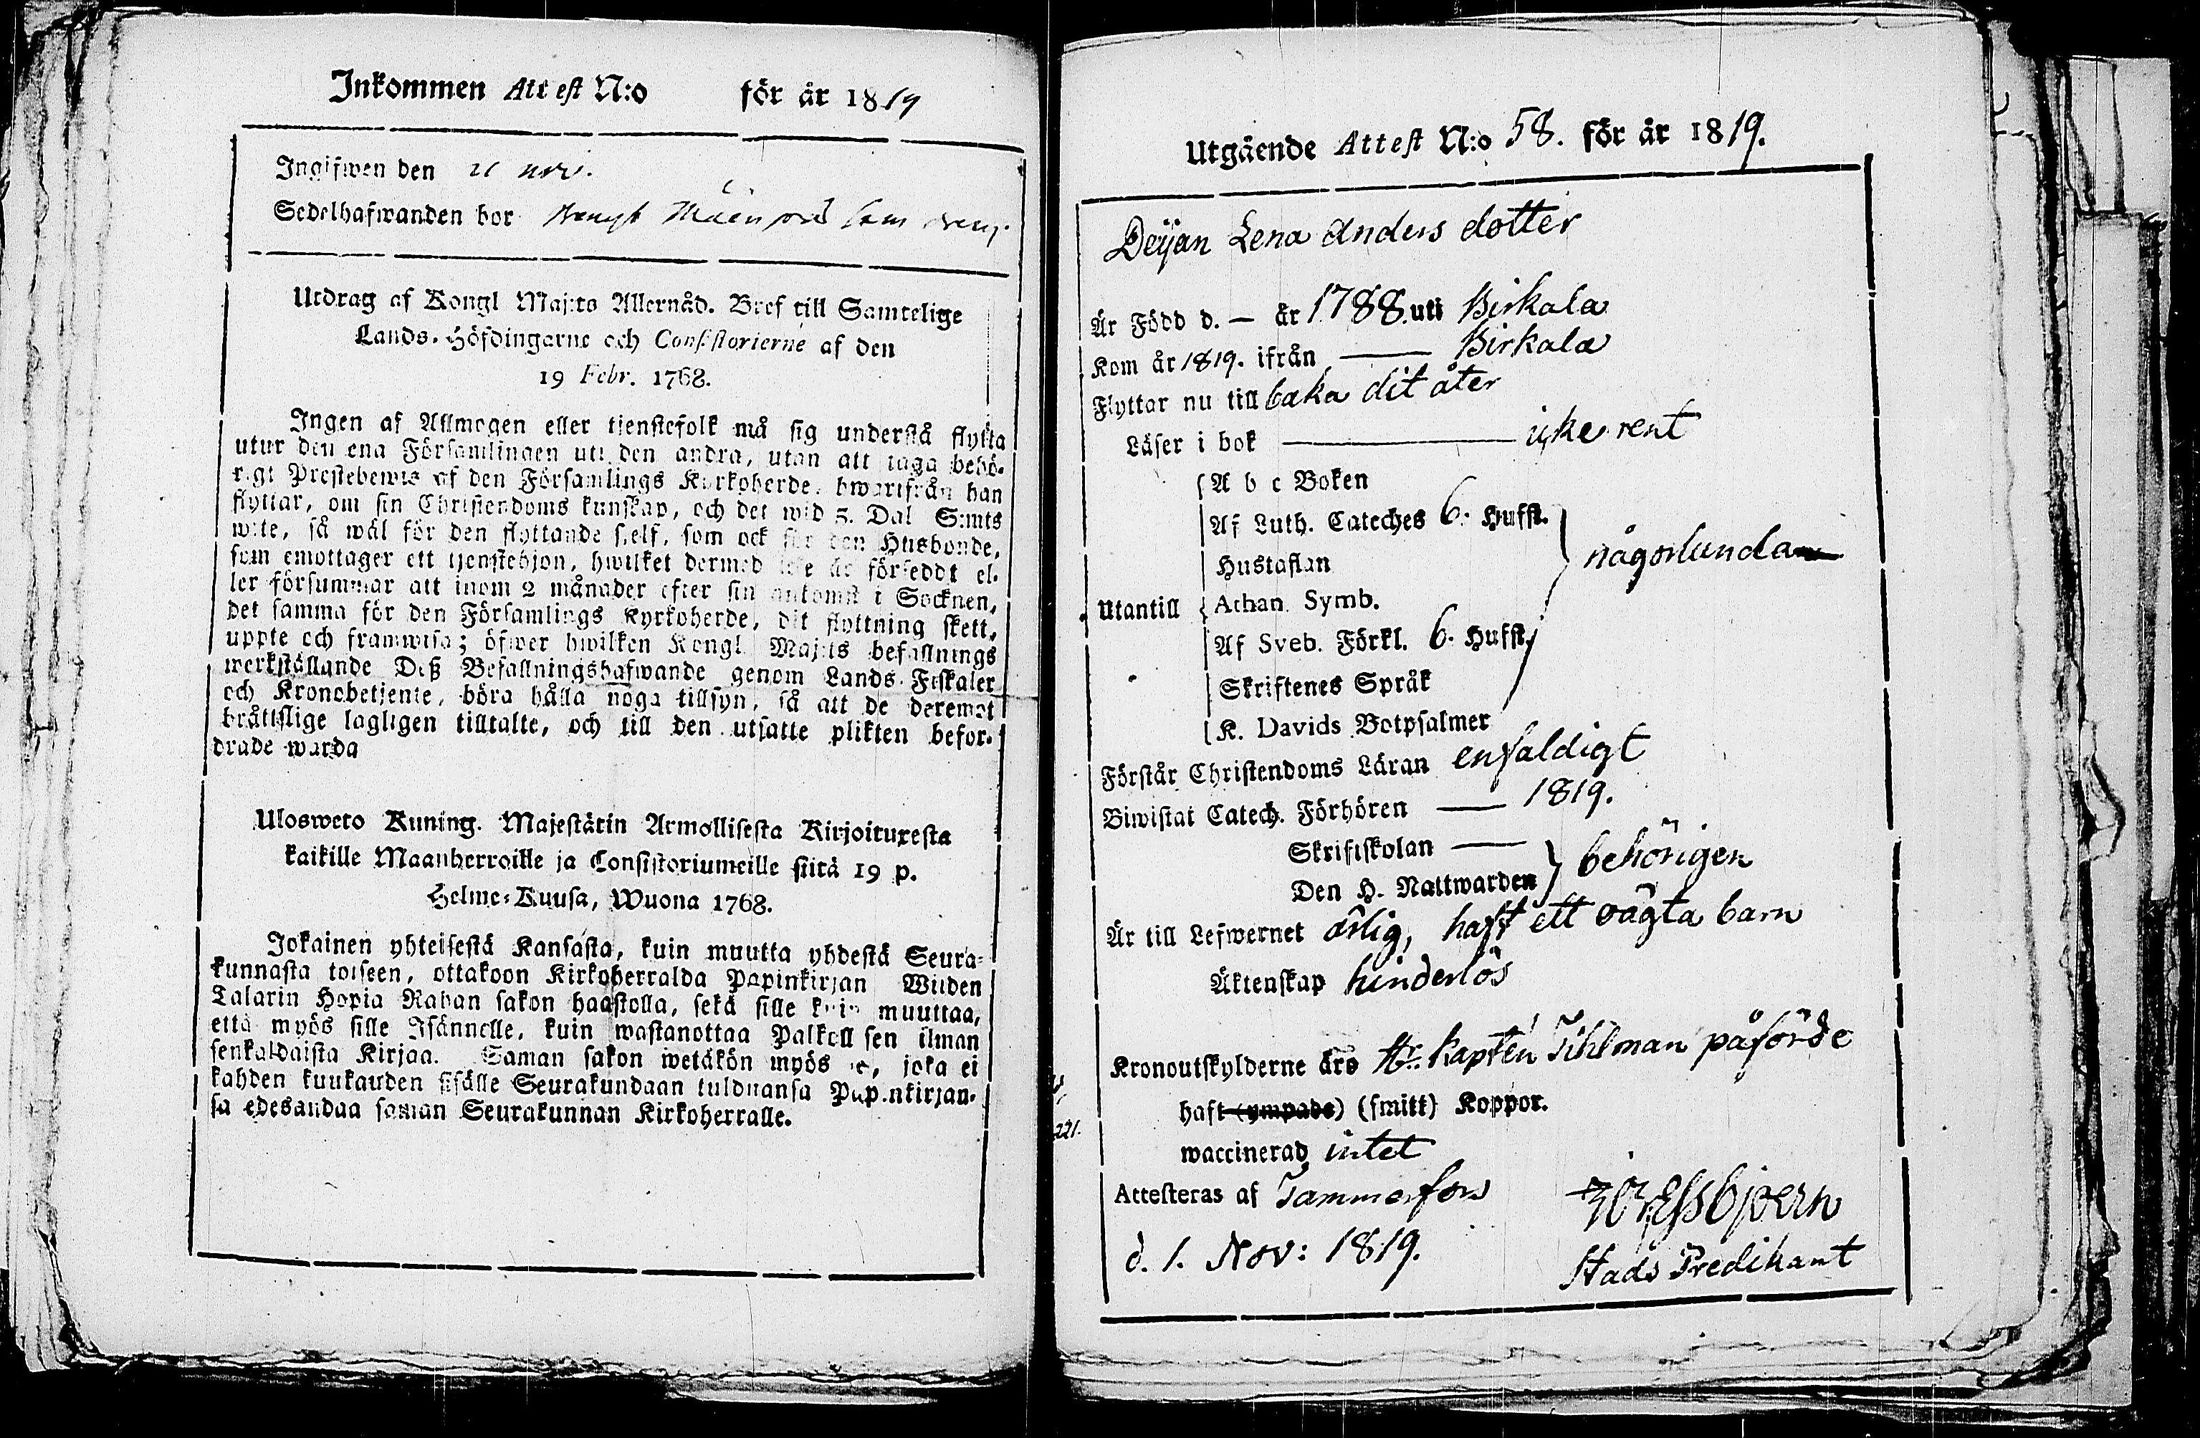 Inkommen Attest N:o för år 1819
Ingifwen den 21 nov.
Sedelhafwanden bor som
Utdrag af Kongl Maj:ts Allernåd. Bref till Samtelige
Lands-Höfdingarne och Consistorierne af den
19 Febr. 1768.
Ingen af Allmogen eller tjenstefolk må sig understå flytta
utur den ena Församlingen uti den andra, utan att taga behö-
rigt Prestebewis af den Församlings Kyrkoherde, hwarifrån han
flyttar, om sin Christendoms kunskap, och det wid 5. Dal S:mts
wite, så wäl för den flyttande sielf, som ock för den Husbonde,
som emottager ett tjenstehjon, hwilket dermed icke är förseddt el-
ler försummar att inom 2 månader efter sin ankomst i Socknen,
det samma för den Församlings Kyrkoherde, dit flyttning skett,
uppte och framwisa; öfwer hwilken Kongl Maj:ts befallnings
werkställande Deß Befallningshafwande genom Lands-Fiskaler
och Kronobetjente, böra hålla noga tillsyn, så att de deremot
bråttslige lagligen tilltalte, och till den utsatte plikten befor-
drade warda
Ulosweto Kuning. Majestätin Armollisesta Kirjoituxesta
kaikille Maanherroille ja Consistoriumeille siitä 19 p.
Helme-Kuusa, Wuona 1768.
Jokainen yhteisestä Kansasta, kuin muutta yhdestä Seura-
kunnasta toiseen, ottakoon Kirkoherralda Papinkirjan Wiiden
Talarin Hopia Rahan sakon haastolla, sekä sille kuin muuttaa,
että myös sille Isännelle, kuin wastanottaa Palkollisen ilman
senkaldaista Kirjaa. Saman sakon wetäkön myös se, joka ei
kahden kuukauden sisälle Seurakundaan tulduansa Papinkirjan-
sa edesandaa saman Seurakunnan Kirkoherralle.
Utgående Attest N:o 58. för år 1819.
Deijan Lena Anders dotter
Är Född d. — år 1788. uti Birkala
Kom år 1819. ifrån — Birkala
Flyttar nu till baka dit åter
Läser i bok — icke rent
A b c Boken
Af Luth. Cateches 6. Hufst.
Hustaflan
någorlunda
Utantill Athan. Symb.
Af Sveb. Förkl. 6. Hufst.
Skriftenes Språk
K. Davids Botpsalmer
Förstår Christendoms Läran enfaldigt
Biwistat Catech. Förhören — 1819.
Skriftskolan —
Den H. Nattwarden behörigen
Är till Lefwernet ärlig, haft ett oägta barn
Äktenskap hinderlös
Kronoutskylderne äro Hr. Kapten Tihlman påförde
haft (ympade) (smitt) Koppor.
waccinerad intet
Attesteras af Tammerfors
d. 1. Nov: 1819.
Essbjoern
Stads Predikant
221.